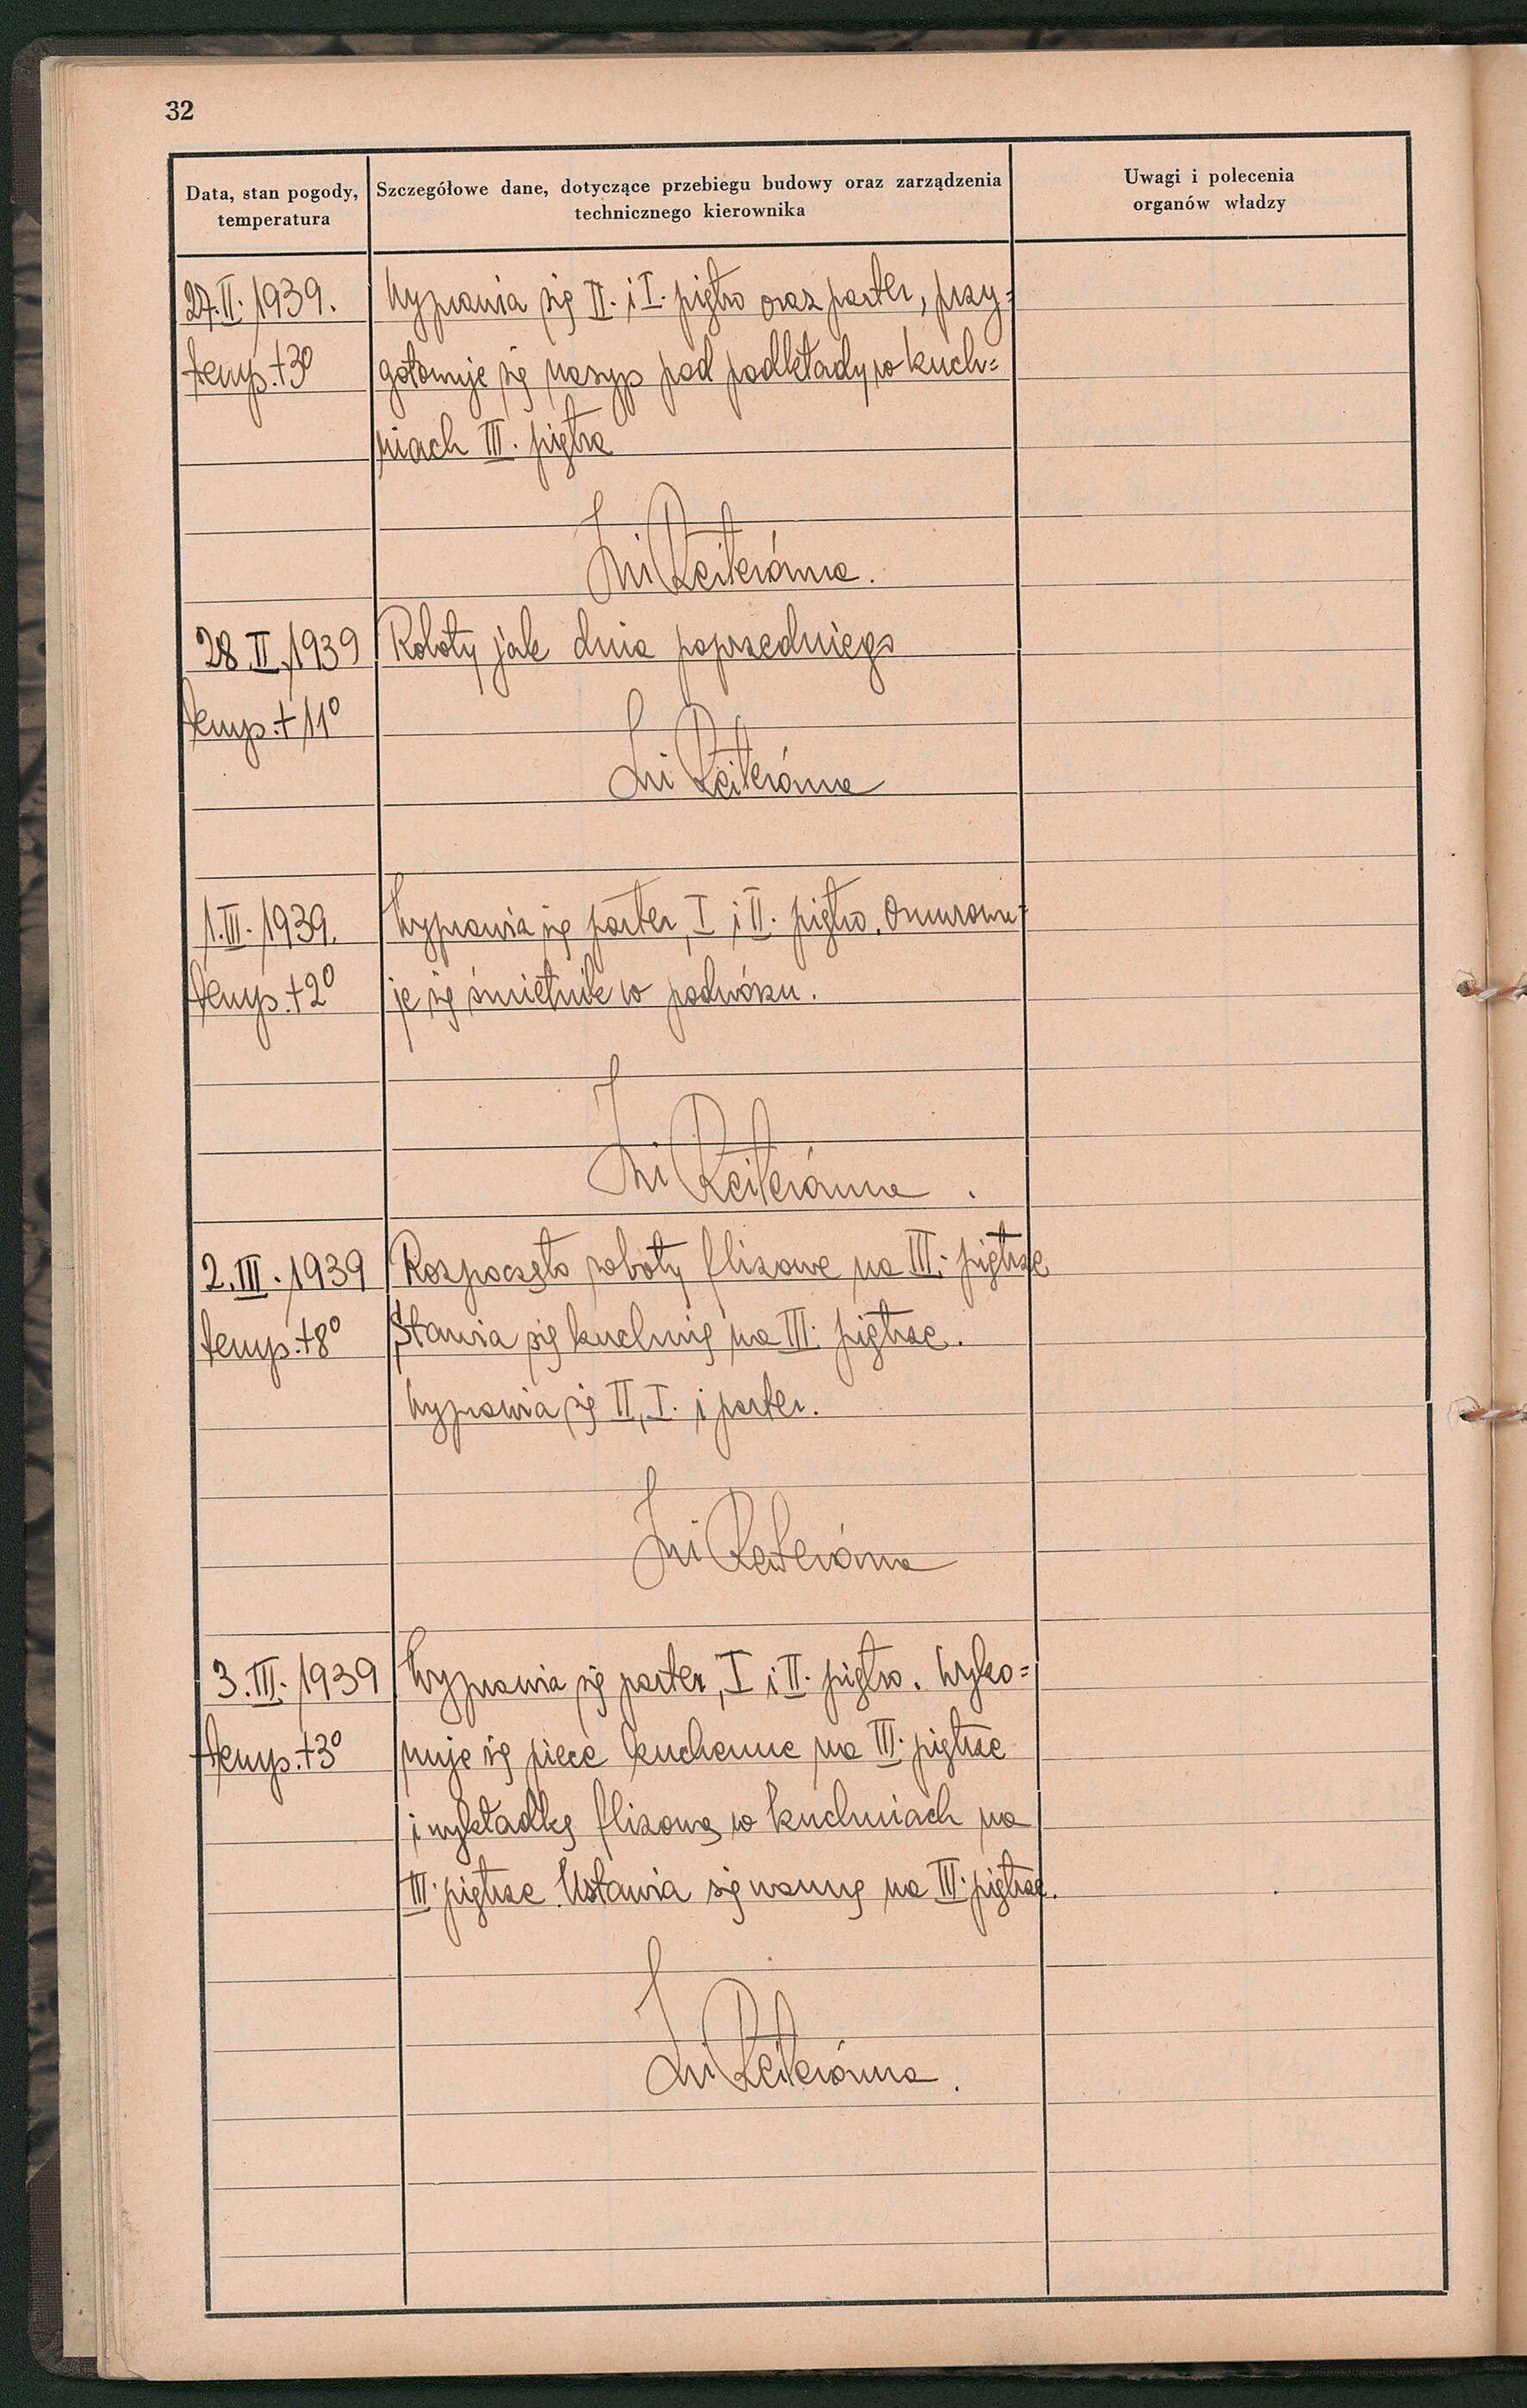 32
Data, stan pogody,
temperatura
Szczegółowe dane, dotyczące przebiegu budowy oraz zarządzenia
technicznego kierownika
Uwagi i polecenia
organów władzy
27.II.1939. Wyprawia się II. i I. piętro oraz parter, przy=
temp.+3° gotowuje się nasyp pod podkłady w kuch=
niach III. piętra
Ini Reiterówna.
28.II.1939 Roboty jak dnia poprzedniego
temp.+11°
Ini Reiterówna
1.III.1939. Wyprawia się parter, I i II. piętro. Omurowu=
temp.+2° je się śmietnik w podwórzu.
Ini Reiterówna.
2.III.1939 Rozpoczęto roboty flizowe na III. piętrze
temp.+8° Stawia się kuchnię na III. piętrze.
Wyprawia się II, I. i parter.
Ini Reiterówna
3.III.1939 Wyprawia się parter, I i II. piętro. Wyko=
temp.+3° nuje się piece kuchenne na III. piętrze
i wykładkę flizową w kuchniach na
III. piętrze. Ustawia się wannę na III. piętrze.
Ini Reiterówna.